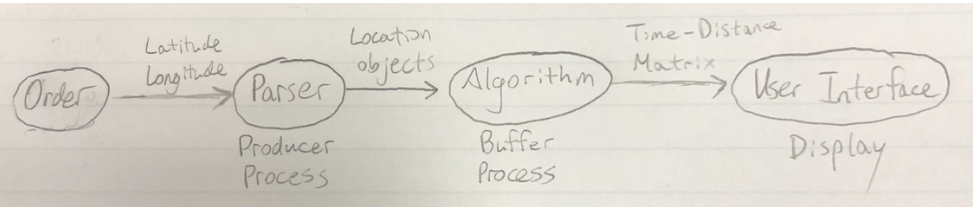 Order
Latitude
Longitude
Parser
Producer
Process
Location
objects
Algorithm
Buffer
Process
Time-Distance
Matrix
User Interface
Display